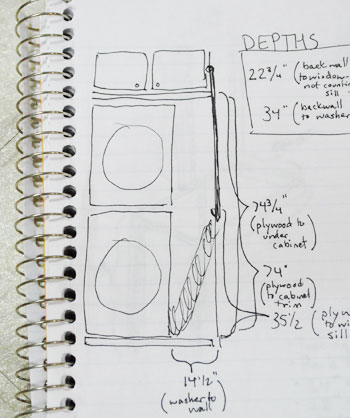 DEPTHS
22 3/4" (back wall
to window-
not counting
sill
34" (backwall
to washer
74 3/4"
(plywood to
under
cabinet)
74"
(plywood
to cabinet
trim
35 1/2 (plyw
to wi
sill
14 1/2"
(washer to
wall)